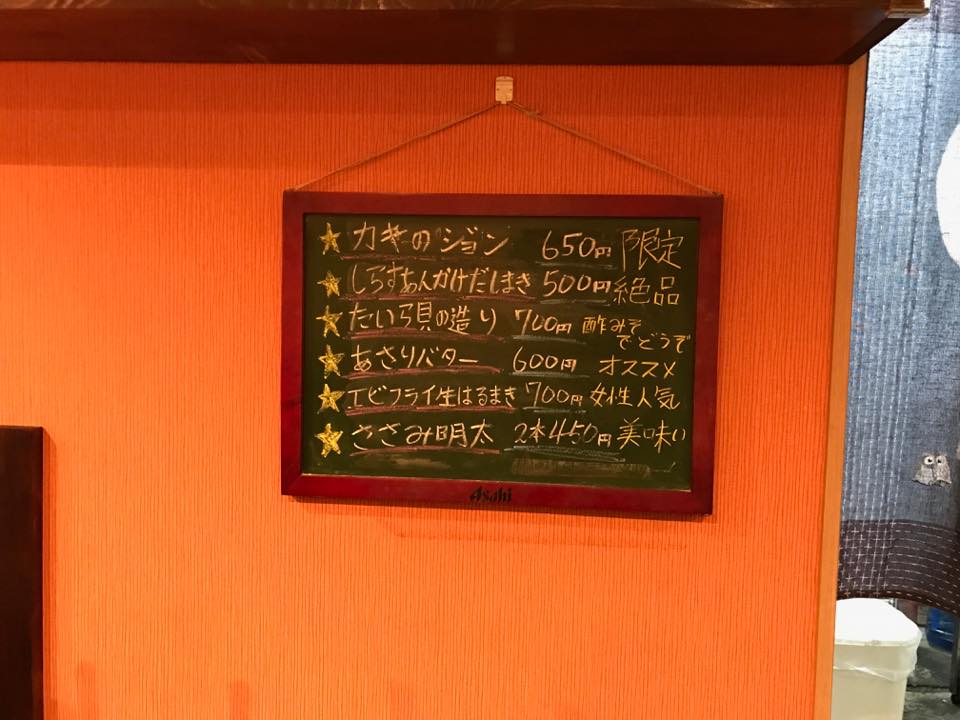 ★ カキのジョン 650円 限定
★ しらすあんかけだしまき 500円 絶品
★ たいら貝の造り 700円 酢みそ
でどうぞ
★ あさりバター 600円 オススメ
★ エビフライ生はるまき 700円 女性人気
★ ささみ明太 2本450円 美味い
Asahi